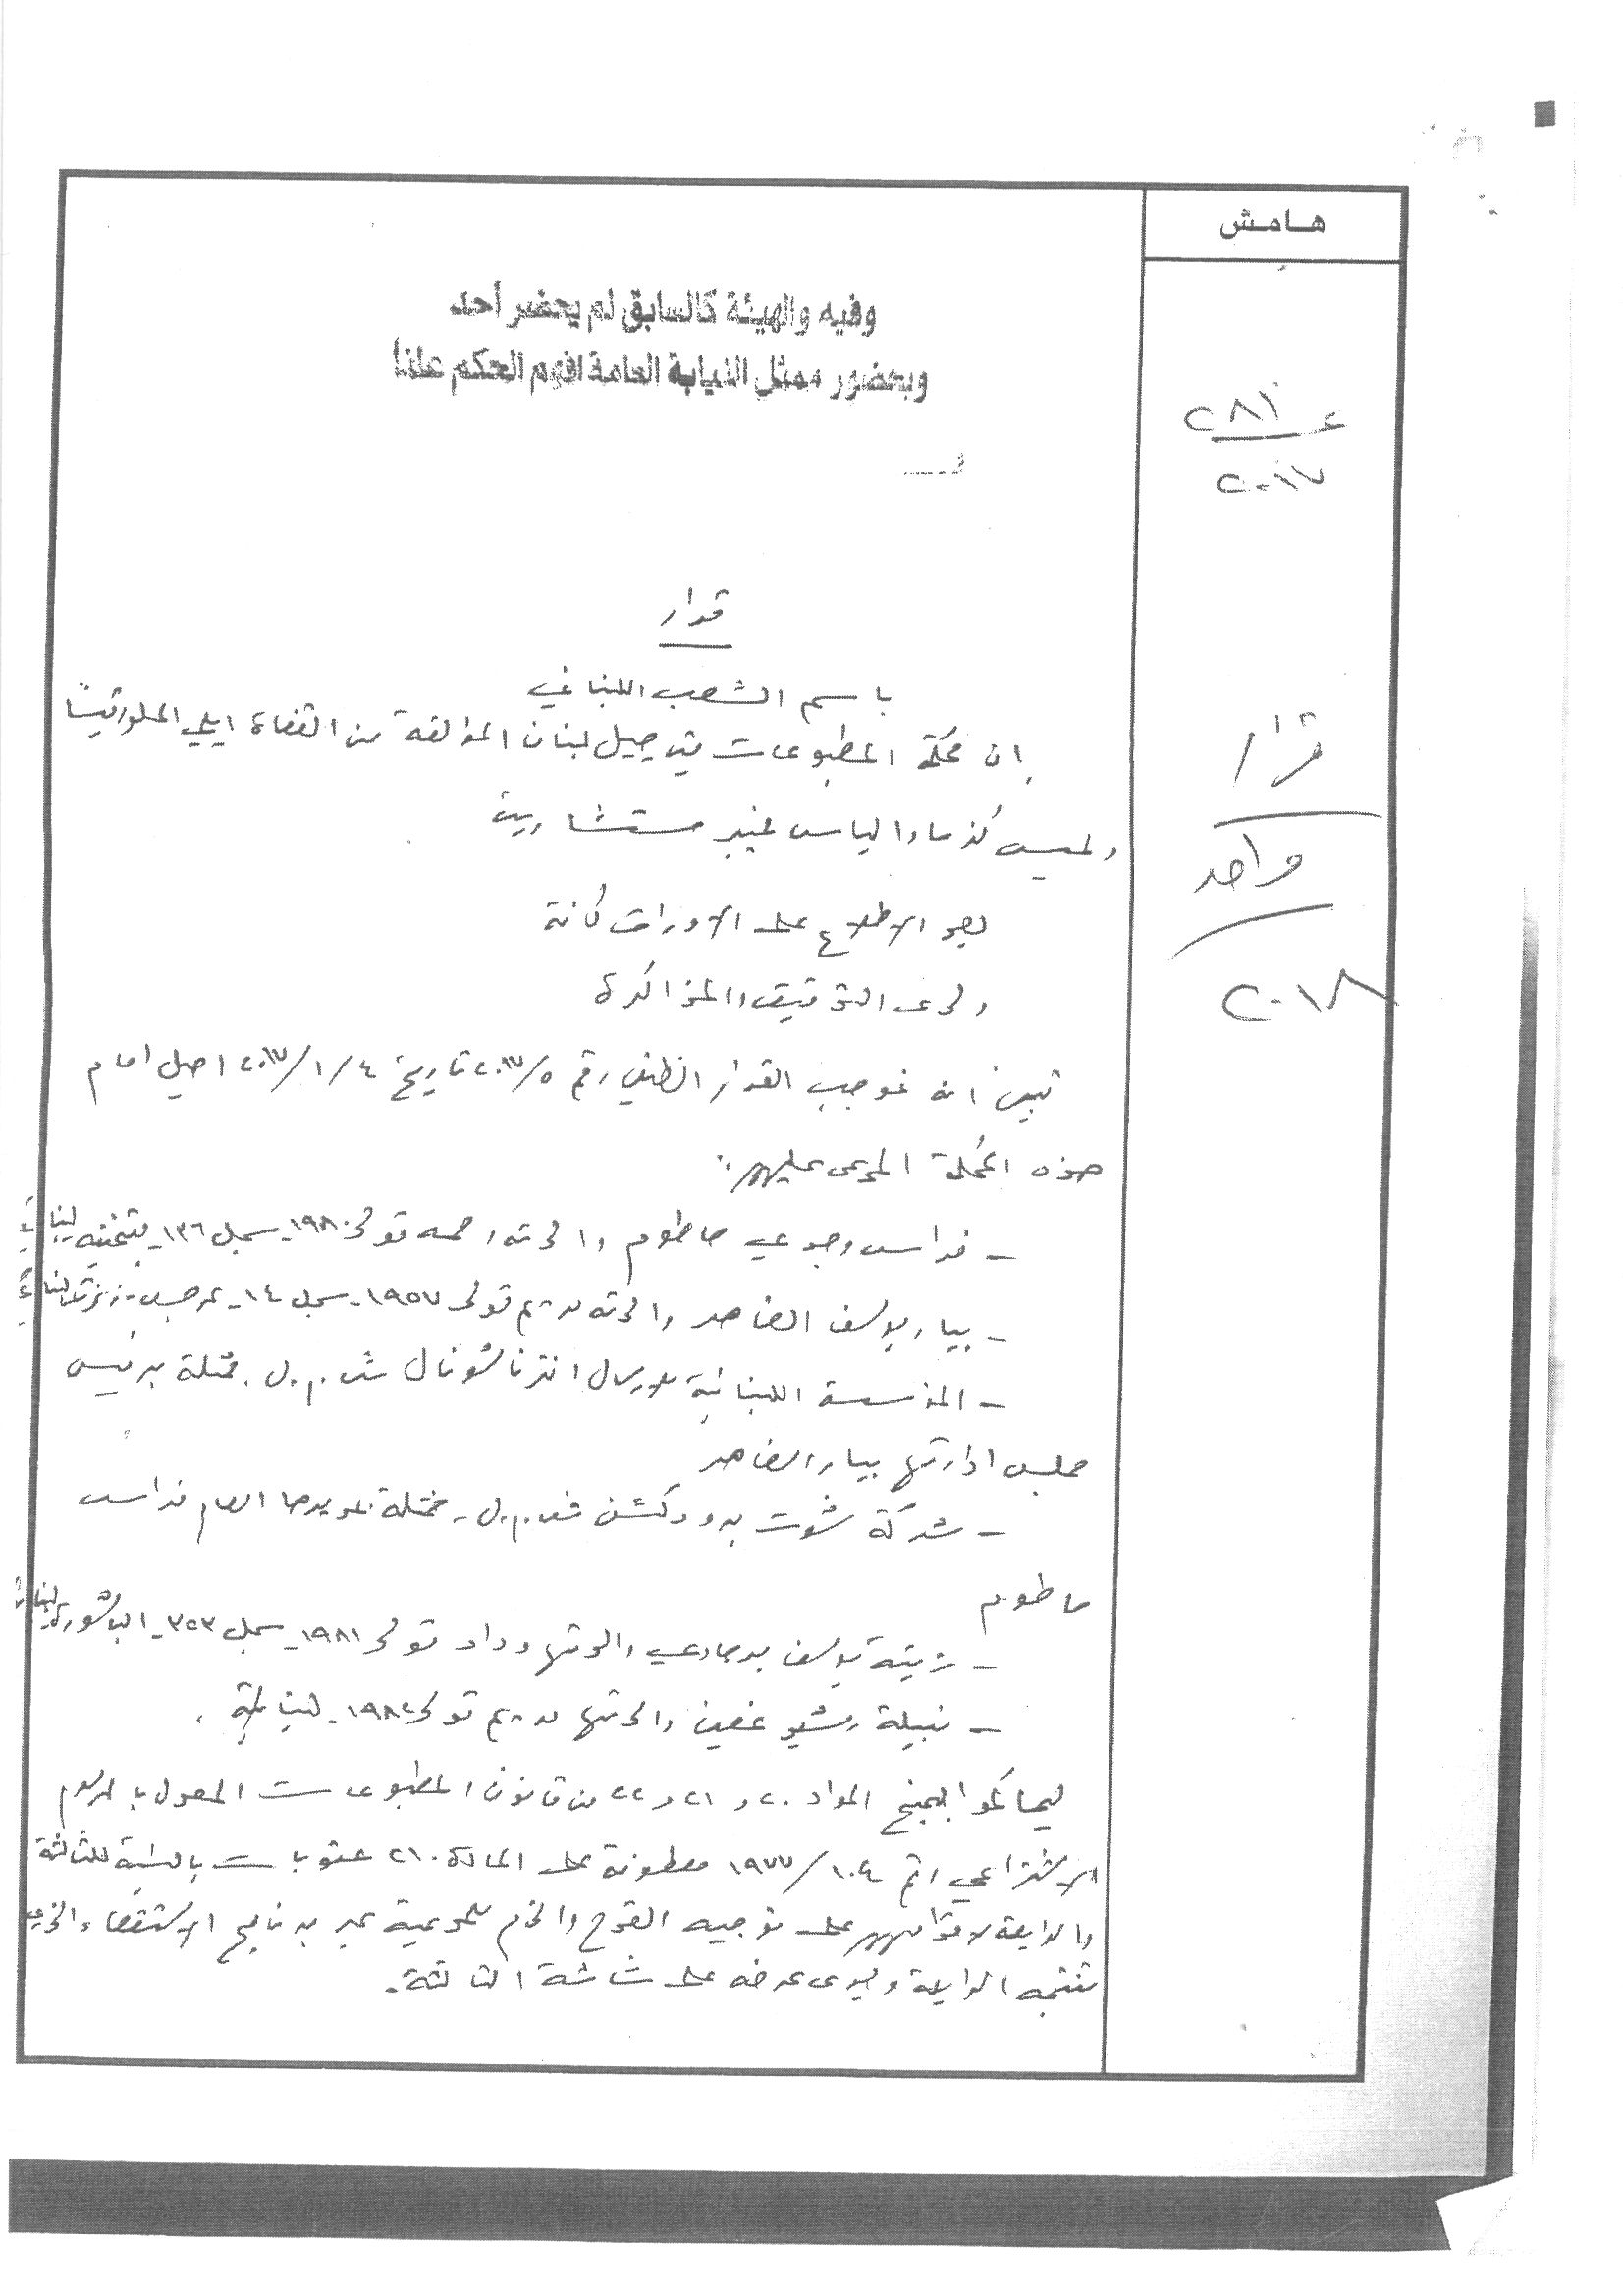 هامش
وفيه والهيئة كالسابق لم يحضر أحد
وبحضور ممثل النيابة العامة افهم الحكم علناً
ع ٢٨١
٢٠١٧
قرار
واحد
٢٠١٨
قرار
باسم الشعب اللبناني
ان محكمة المطبوعات في جبل لبنان المؤلفة من القضاة ايلي الحلو رئيساً
ولميس كزما والياس مستشارين
بعد الاطلاع على الاوراق كافة
ولدى التدقيق والمذاكرة
تبين انه بموجب القرار الظني رقم ٢٠١٧/٥ تاريخ ٢٠١٧/١/٤ احيل امام
هذه المحكمة المدعى عليهم:
- فراس وجيه حاطوم والدته تولد ١٩٨٠ - سجل ١٣٦ - لبناني
- بيار يوسف الضاهر والدته مريم تولد ١٩٥٧ - سجل ١٤ - لبناني
- المؤسسة اللبنانية للارسال انترناشونال ش.م.ل. ممثلة برئيس
مجلس ادارتها بيار الضاهر
- شركة شوت برودكشن ش.م.ل - ممثلة بمديرها العام فراس
حاطوم
- يوسف والدتها وداد تولد ١٩٨١ - سجل ٣٥٣ - الباشورة
- نبيلة رشيد غصين والدتها مريم تولد ١٩٨٤ - لبنانية.
ليحاكموا بجنح المواد ٢٠ و ٢١ و ٢٢ من قانون المطبوعات المعدل بالمرسوم
الاشتراعي رقم ١٩٧٧/١٠٤ معطوفة على المادة ٢١٠ عقوبات بالنسبة للثالثة
والرابعة لاقدامهم على توجيه القدح والذم للمدعية عبر برنامج الاستقصاء الذي
تنتجه الرابعة ويجري عرضه على شاشة الثالثة.